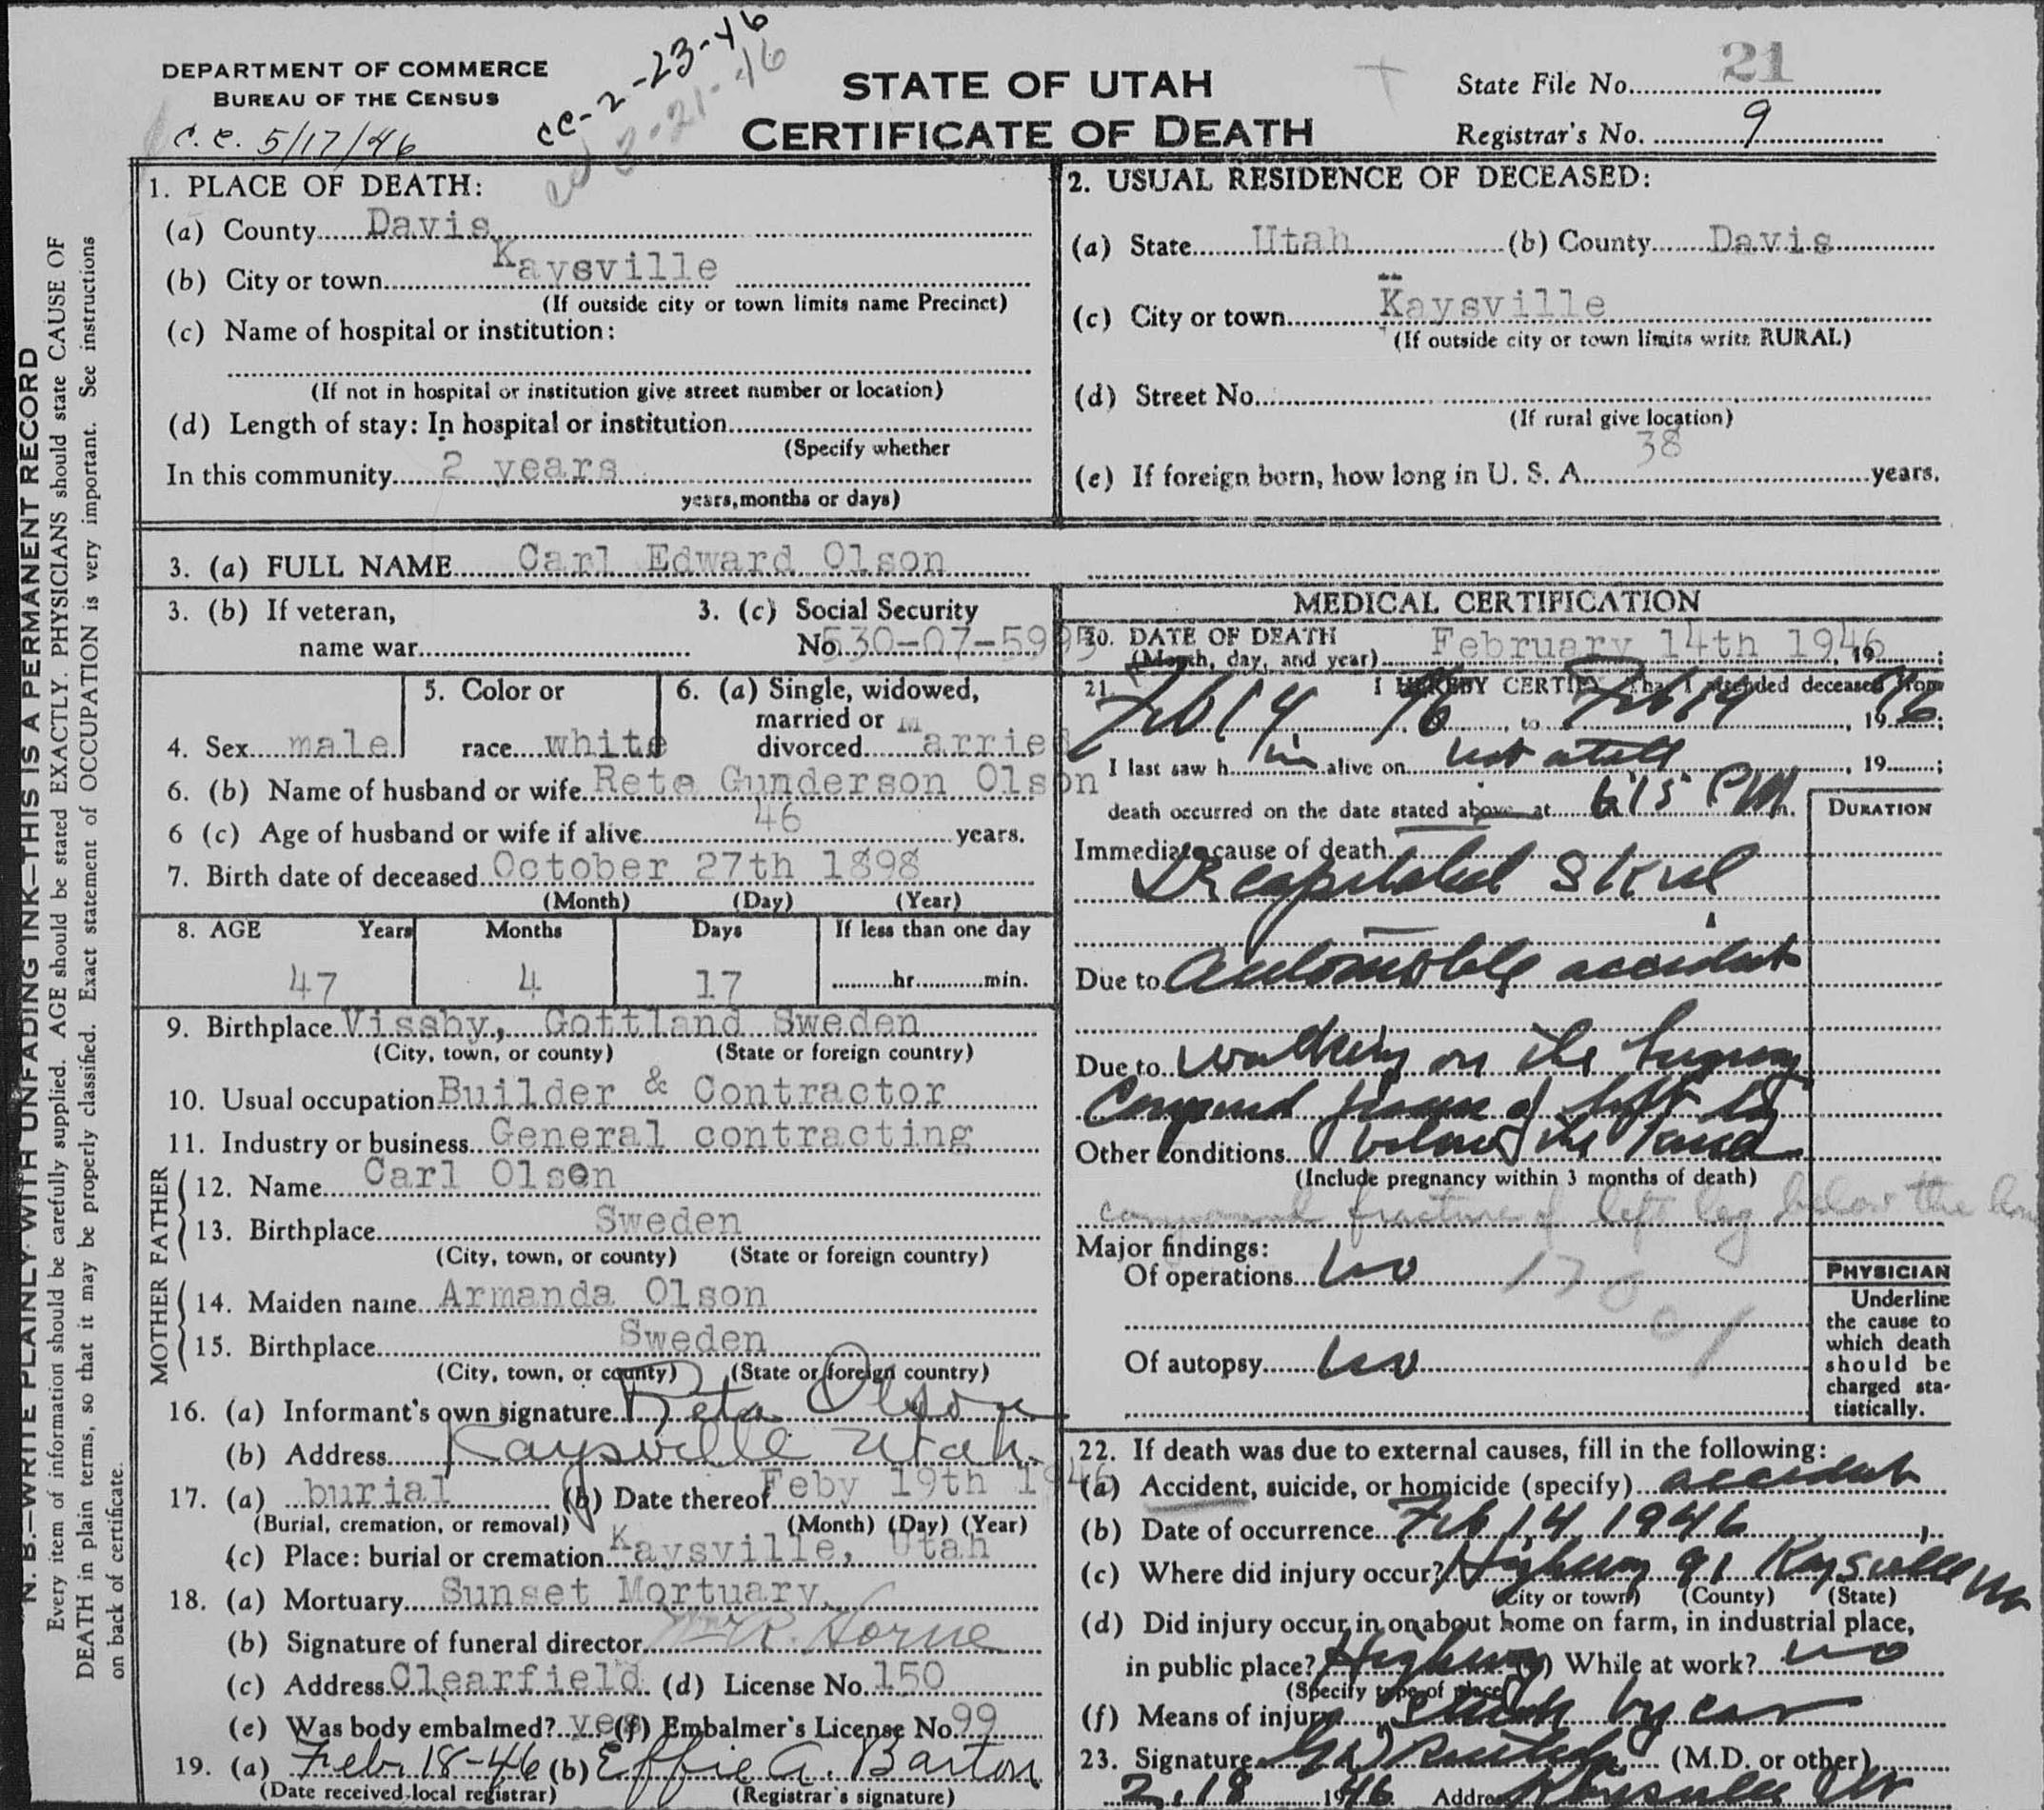 DEPARTMENT OF COMMERCE
BUREAU OF THE CENSUS
C. C. 5/17/46
cc-2-23-46
2-21-46
STATE OF UTAH
CERTIFICATE OF DEATH
State File No. 21
Registrar's No. 9
N. B.—WRITE PLAINLY WITH UNFADING INK—THIS IS A PERMANENT RECORD
Every item of information should be carefully supplied. AGE should be stated EXACTLY. PHYSICIANS should state CAUSE OF
DEATH in plain terms, so that it may be properly classified. Exact statement of OCCUPATION is very important. See instructions
on back of certificate.
1. PLACE OF DEATH:
(a) County Davis
(b) City or town Kaysville
(If outside city or town limits name Precinct)
(c) Name of hospital or institution:
(If not in hospital or institution give street number or location)
(d) Length of stay: In hospital or institution
(Specify whether
In this community 2 years
years, months or days)
2. USUAL RESIDENCE OF DECEASED:
(a) State Utah (b) County Davis
(c) City or town Kaysville
(If outside city or town limits write RURAL)
(d) Street No.
(If rural give location)
(e) If foreign born, how long in U. S. A. 38 years.
3. (a) FULL NAME Carl Edward Olson
3. (b) If veteran,
name war
3. (c) Social Security
No. 530-07-5995
4. Sex male
5. Color or
race white
6. (a) Single, widowed,
married or
divorced married
6. (b) Name of husband or wife Reta Gunderson Olson
6 (c) Age of husband or wife if alive 46 years.
7. Birth date of deceased October 27th 1898
(Month) (Day) (Year)
8. AGE Years Months Days If less than one day
47 4 17 hr. min.
9. Birthplace Vissby, Gottland Sweden
(City, town, or county) (State or foreign country)
10. Usual occupation Builder & Contractor
11. Industry or business General contracting
FATHER
12. Name Carl Olson
13. Birthplace Sweden
(City, town, or county) (State or foreign country)
MOTHER
14. Maiden name Armanda Olson
15. Birthplace Sweden
(City, town, or county) (State or foreign country)
16. (a) Informant's own signature Reta Olson
(b) Address Kaysville Utah.
17. (a) burial (b) Date thereof Feby 19th 1946
(Burial, cremation, or removal) (Month) (Day) (Year)
(c) Place: burial or cremation Kaysville, Utah
18. (a) Mortuary Sunset Mortuary
(b) Signature of funeral director Wm R. Horne
(c) Address Clearfield (d) License No. 150
(e) Was body embalmed? yes (f) Embalmer's License No. 99
19. (a) Feb. 18-46 (b) Effie A. Barton
(Date received local registrar) (Registrar's signature)
MEDICAL CERTIFICATION
20. DATE OF DEATH February 14th 1946
(Month, day, and year) , 19 ;
21. I HEREBY CERTIFY That I attended deceased from
Feb 14 46, to Feb 14, 1946;
I last saw him alive on not at all, 19 ;
death occurred on the date stated above at 6:15 PM m.
DURATION
Immediate cause of death
Decapitated Skul
Due to Automobile accident
Due to walking on the higway
Compound fracture of left leg
Other conditions below the knee
(Include pregnancy within 3 months of death)
compound fracture of left leg below the knee
Major findings:
Of operations no
170
01
Of autopsy no
PHYSICIAN
Underline
the cause to
which death
should be
charged sta-
tistically.
22. If death was due to external causes, fill in the following:
(a) Accident, suicide, or homicide (specify) accident
(b) Date of occurrence Feb 14 1946
(c) Where did injury occur? Highway 91 Kaysville Ut
(City or town) (County) (State)
(d) Did injury occur in or about home on farm, in industrial place,
in public place? Highway (e) While at work? no
(Specify type of place)
(f) Means of injury Struck by car
23. Signature (M.D. or other)
2. 18 1946 Address Kaysville Ut